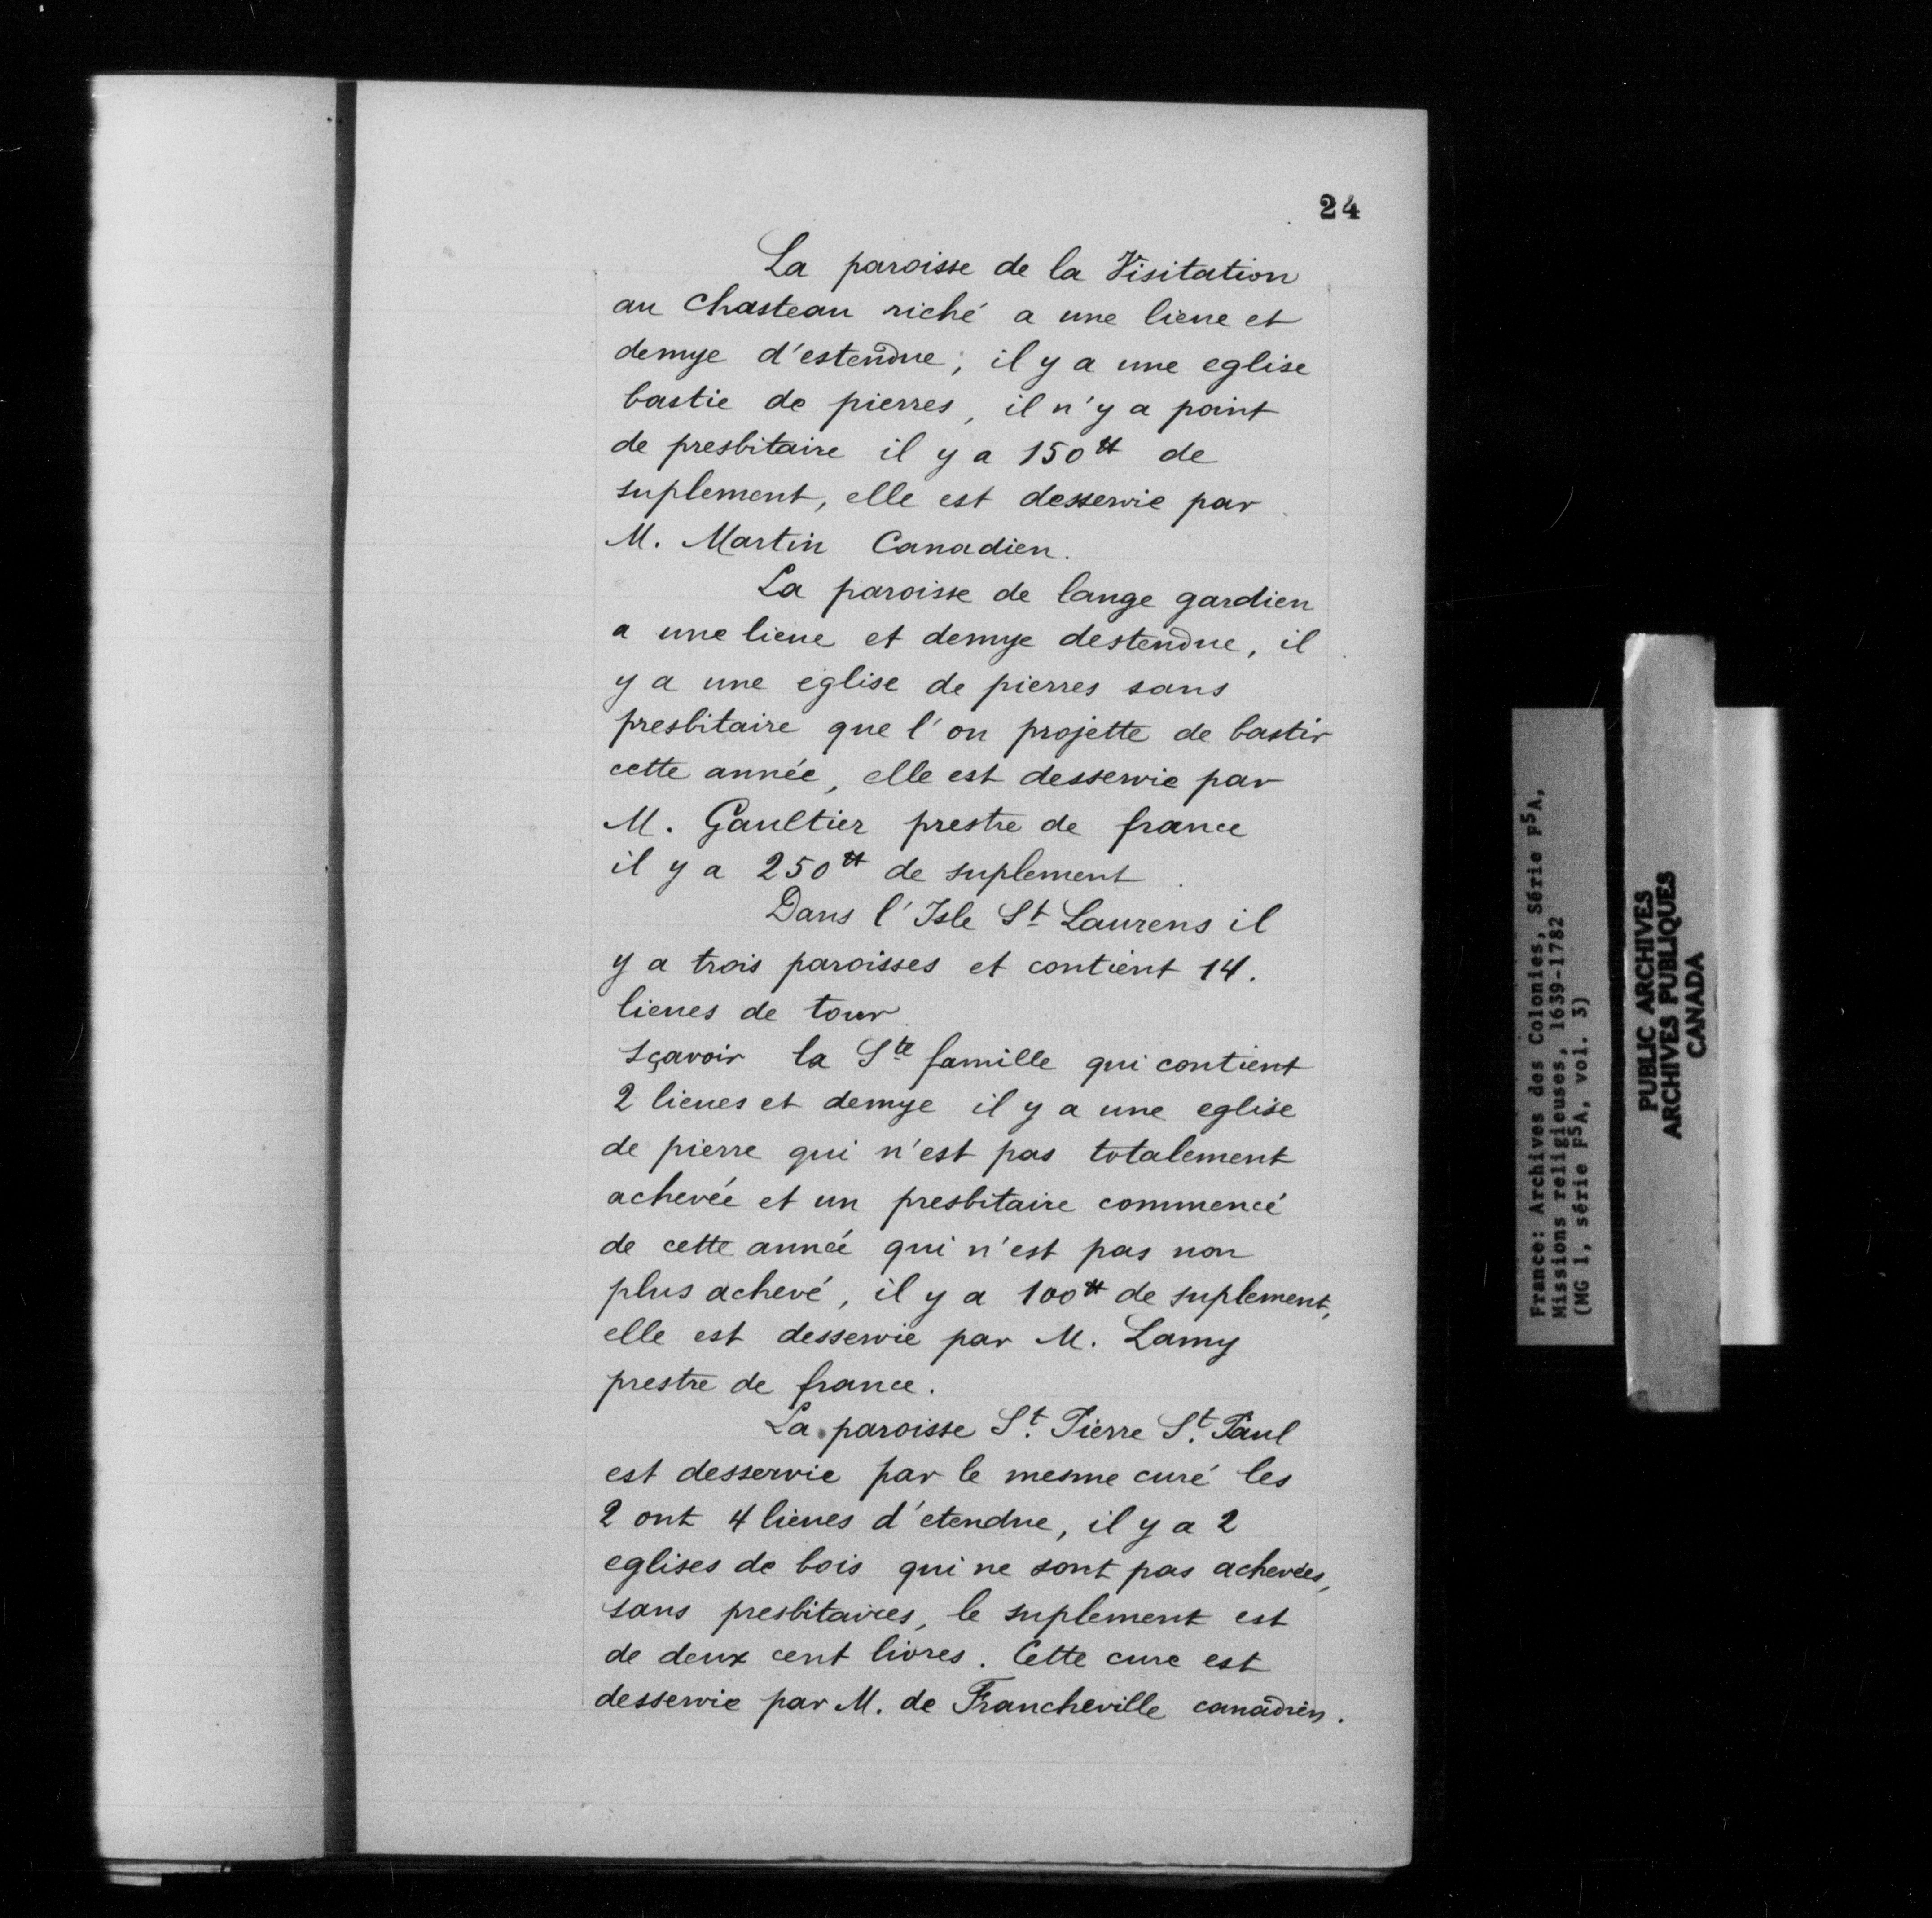 24
La paroisse de la Visitation
au Chasteau riché a une lieue et
demye d'estendue, il y a une eglise
bastie de pierres, il n'y a point
de presbitaire il y a 150tt de
suplement, elle est desservie par
M. Martin Canadien.
La paroisse de lange gardien
a une lieue et demye destendue, il
y a une eglise de pierres sans
presbitaire que l'on projette de bastir
cette année, elle est desservie par
M. Gaultier prestre de france
il y a 250tt de suplement.
Dans l'Isle St Laurens il
y a trois paroisses et contient 14.
lieues de tour
sçavoir la Ste famille qui contient
2 lieues et demye il y a une eglise
de pierre qui n'est pas totalement
achevée et un presbitaire commencé
de cette année qui n'est pas non
plus achevé, il y a 100tt de suplement,
elle est desservie par M. Lamy
prestre de france.
La paroisse St. Pierre St. Paul
est desservie par le mesme curé les
2 ont 4 lieues d'etendue, il y a 2
eglises de bois qui ne sont pas achevées,
sans presbitaires, le suplement est
de deux cent livres. Cette cure est
desservie par M. de Francheville canadien.
France: Archives des Colonies, Série F5A,
Missions religieuses, 1639-1782
(MG 1, série F5A, vol. 3)
PUBLIC ARCHIVES
ARCHIVES PUBLIQUES
CANADA